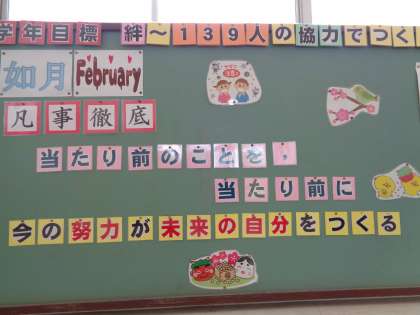 学年目標 絆～139人の協力でつく
如月 February
凡事徹底
当たり前のことを,
当たり前に
今の努力が未来の自分をつくる